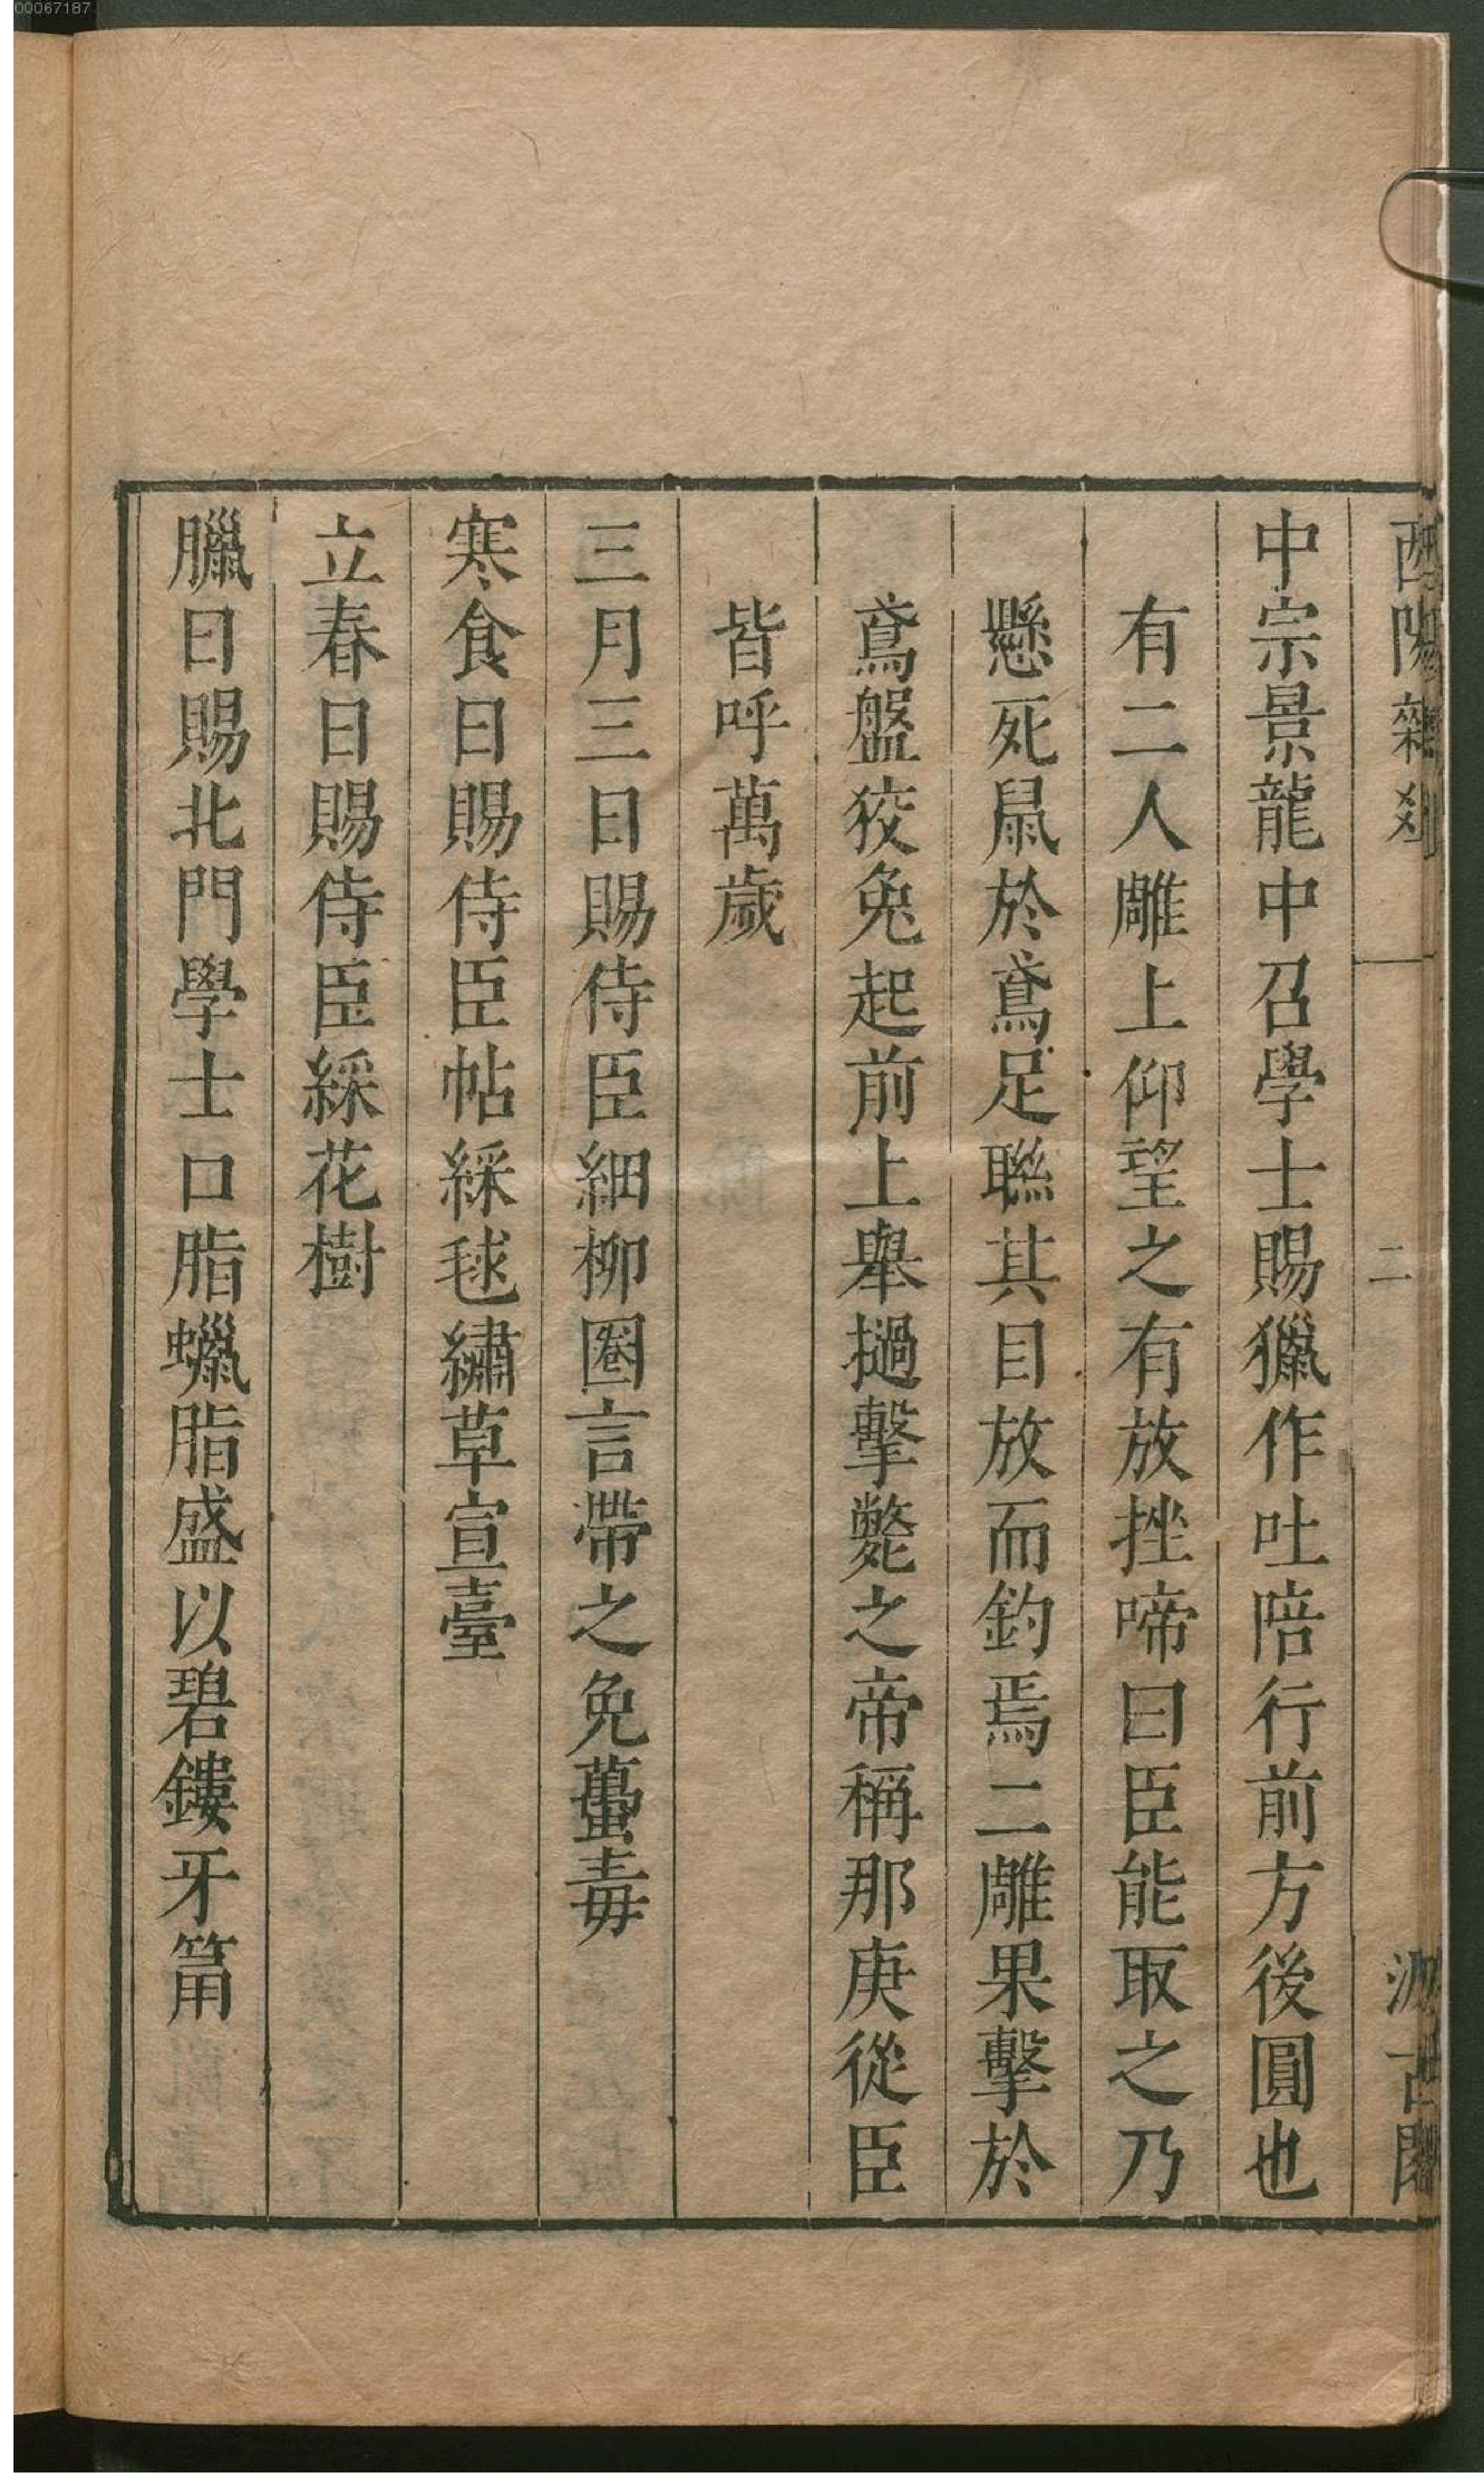 00067187
酉陽雜俎
二
汲古閣
中宗景龍中召學士賜獵作吐陪行前方後圓也
有二人雕上仰望之有放挫啼曰臣能取之乃
懸死鼠於鳶足聯其目放而釣焉二雕果擊於
鳶盤狡兔起前上舉撾擊斃之帝稱那庚從臣
皆呼萬歲
三月三日賜侍臣細柳圈言帶之免蠆毒
寒食日賜侍臣帖綵毬繡草宣臺
立春日賜侍臣綵花樹
臘日賜北門學士口脂蠟脂盛以碧鏤牙筩